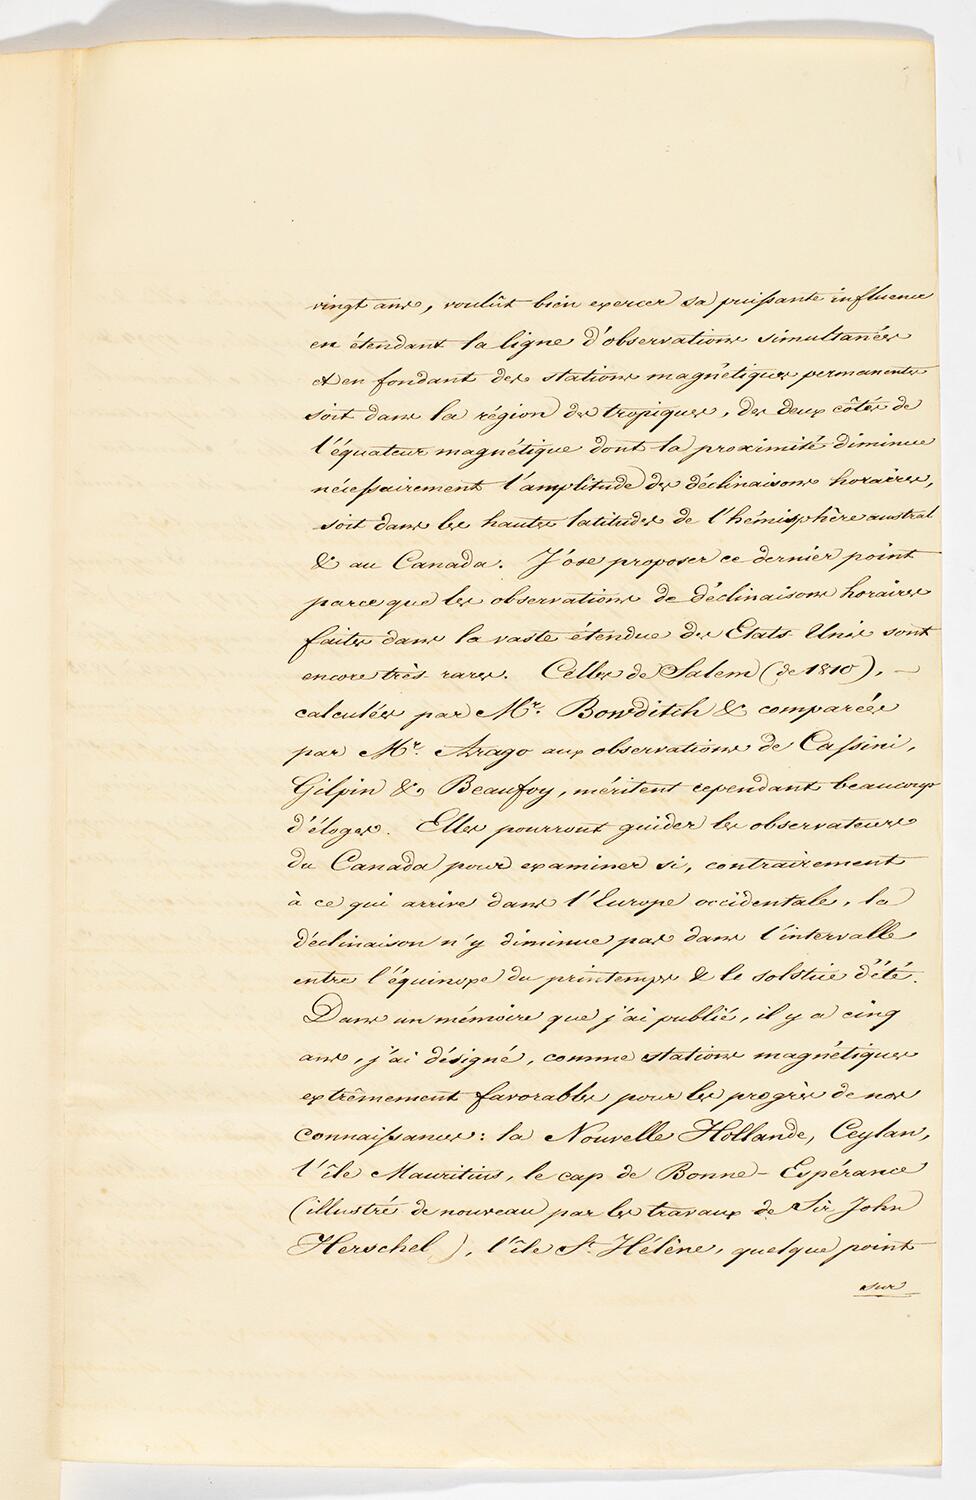 vingt ans, voulût bien exercer sa puissante influence
en étendant la ligne d'observations simultanées
et en fondant des stations magnétiques permanentes
soit dans la région des tropiques, des deux côtés de
l'équateur magnétique dont la proximité diminue
nécessairement l'amplitude des déclinaisons horaires,
soit dans les hautes latitudes de l'hémisphère austral
& au Canada. J'ose proposer ce dernier point
parce que les observations de déclinaisons horaires
faites dans la vaste étendue des Etats-Unis sont
encore très rares. Celles de Salem (de 1810), –
calculées par Mr. Bowditch & comparées
par Mr. Arago aux observations de Cassini,
Gilpin & Beaufoy, méritent cependant beaucoup
d'éloges. Elles pourront guider les observateurs
du Canada pour examiner si, contrairement
à ce qui arrive dans l'Europe occidentale, la
déclinaison n'y diminue pas dans l'intervalle
entre l'équinoxe du printemps & le solstice d'été.
Dans un mémoire que j'ai publié, il y a cinq
ans, j'ai désigné, comme stations magnétiques
extrêmement favorables pour les progrès de nos
connaissances: la Nouvelle Hollande, Ceylan,
l'île Mauritius, le cap de Bonne-Espérance
(illustré de nouveau par les travaux de Sir John
Herschel), l'île St. Hélène, quelque point
sur